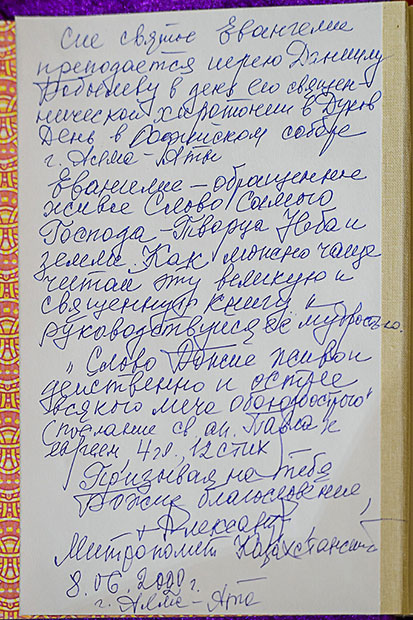 Сие святое Евангелие
преподается иерею Даниилу
в день его священ-
нической хиротонии в Духов
День в Софийском соборе
г. Алма-Аты
Евангелие – обращенное
живое Слово Самого
Господа – Творца Неба и
земли. Как можно чаще
читай эту великую и
священную книгу и
руководствуйся её мудростью.
„Слово Божие живо и
действенно и острее
всякого меча обоюдоострого"
(Послание св. ап. Павла к
евреям 4 гл. 12 стих
Призывая на тебя
Божие благословение,
+ Александр,
Митрополит Казахстанский
8.06.20 г.
г. Алма-Ата